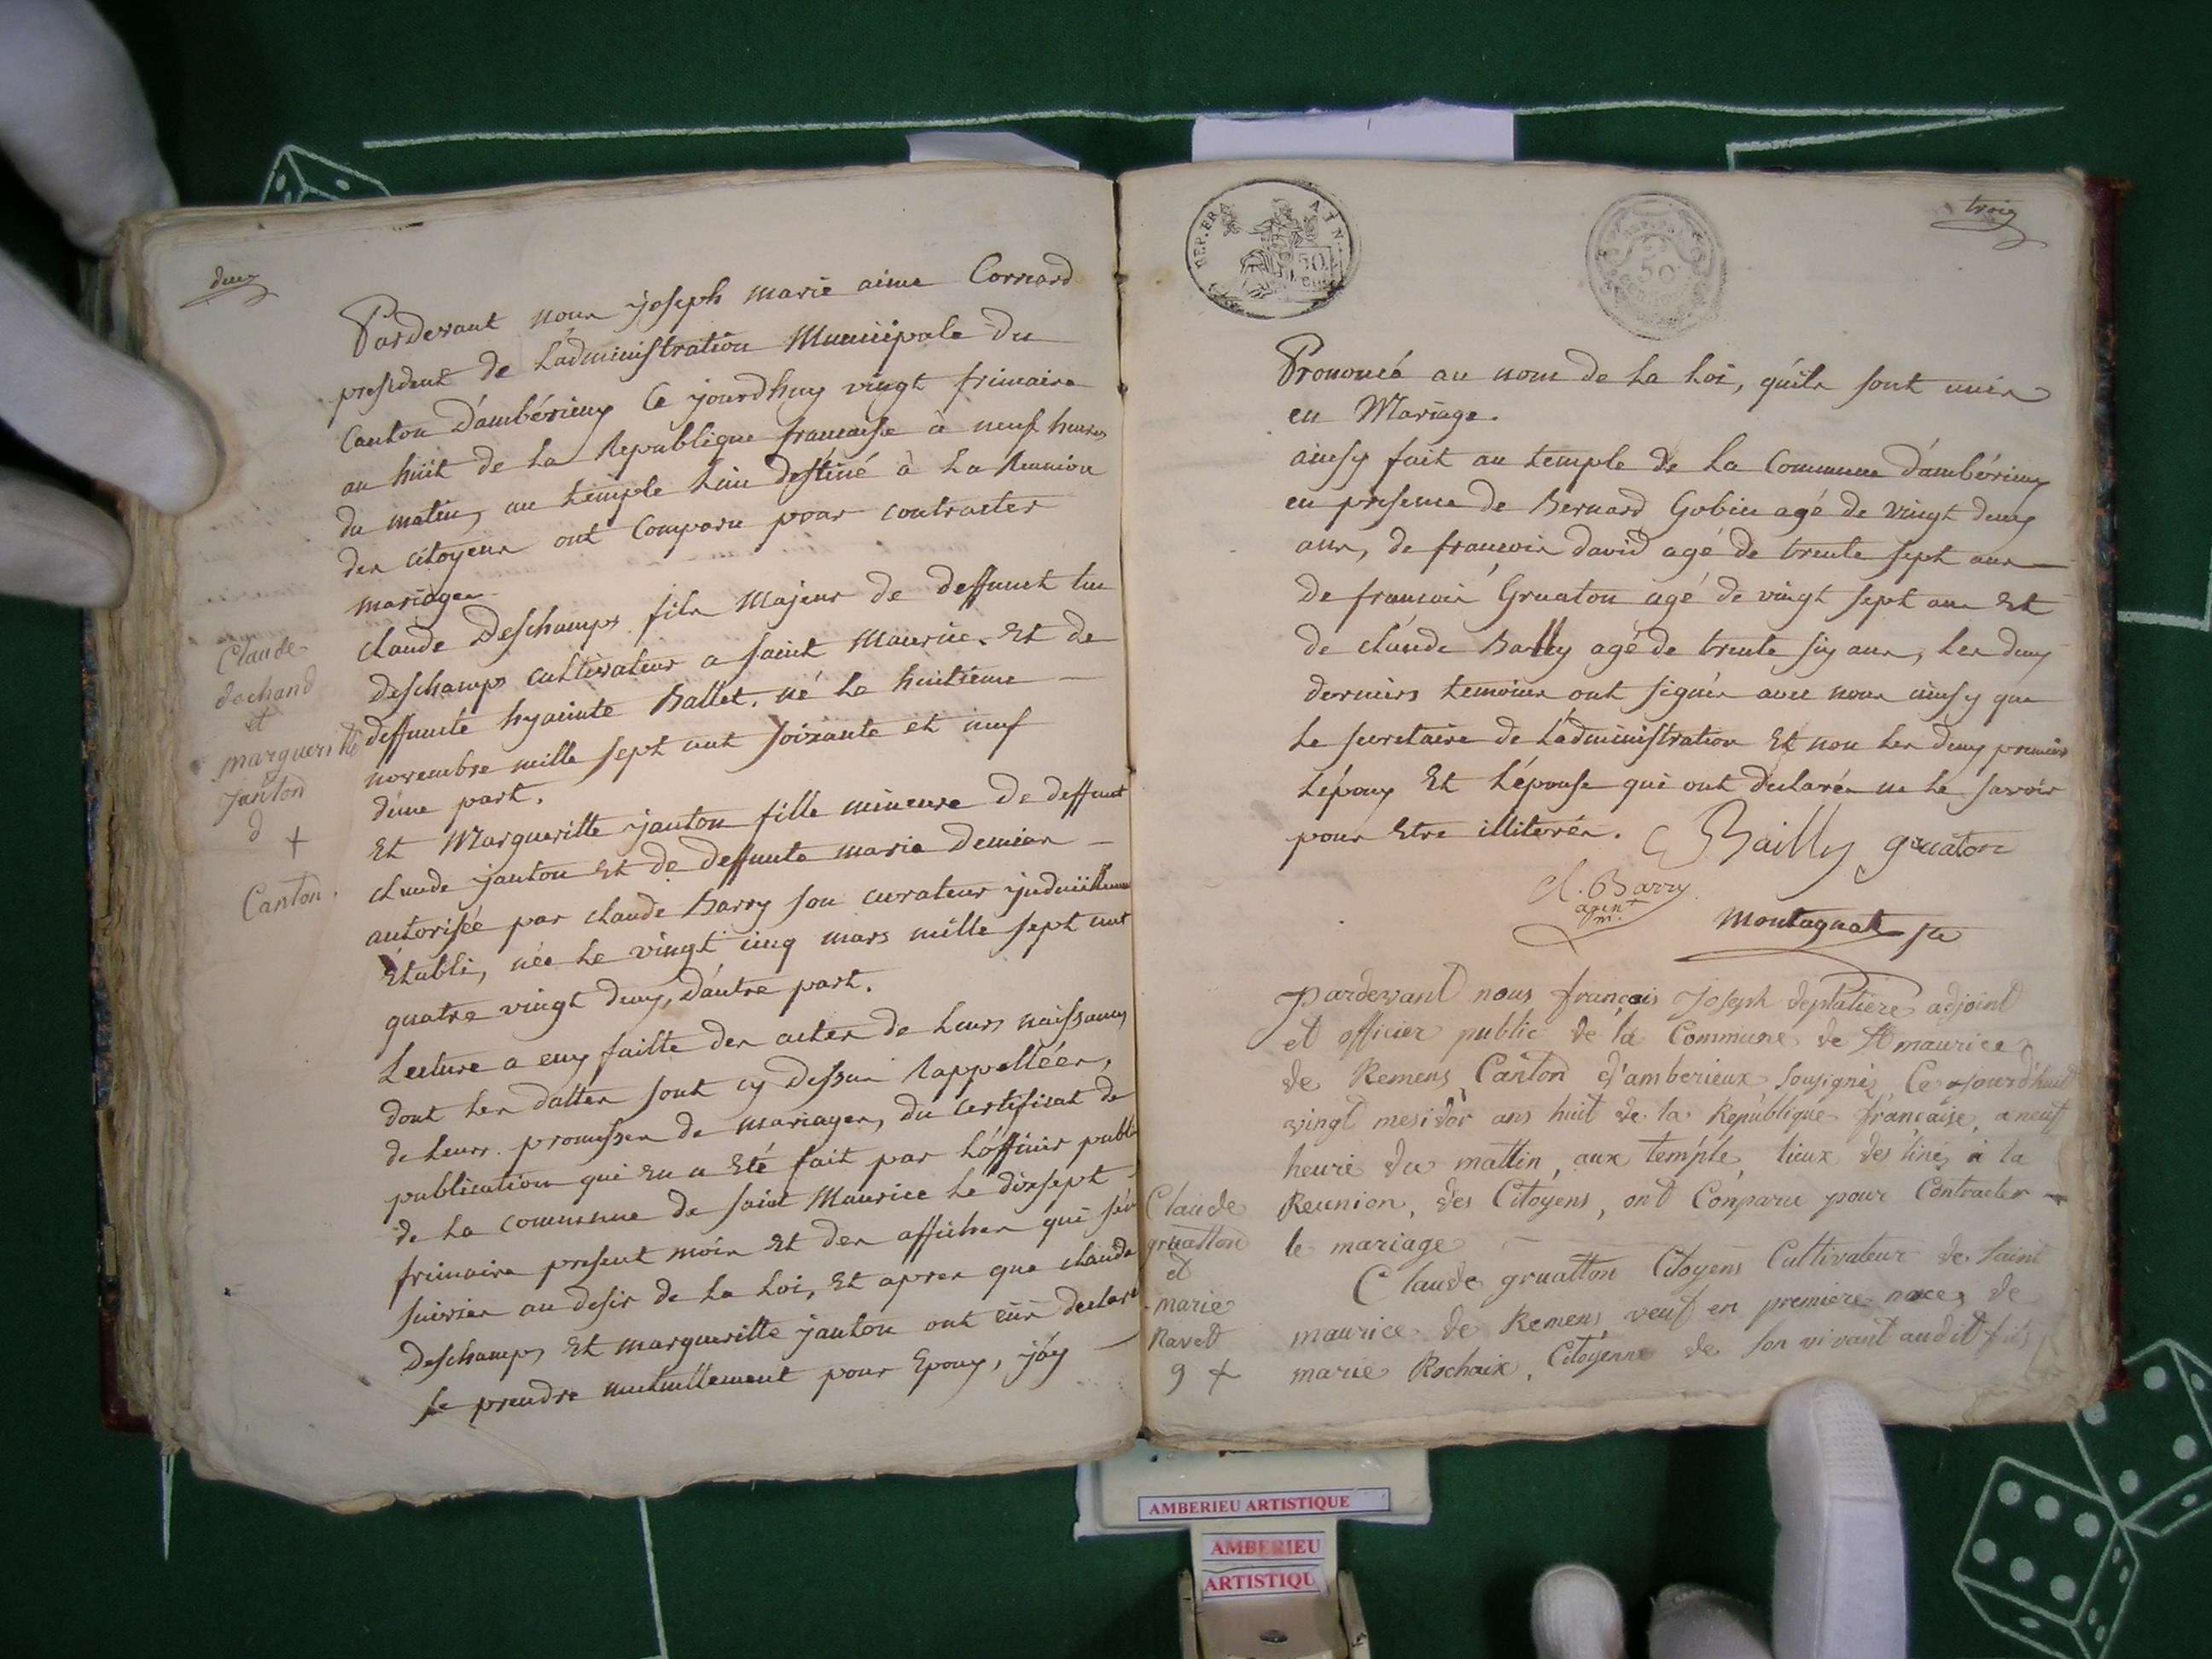 deux
Pardevant nous joseph marie aimé Cornard
president de L'administration Municipale du
Canton D'ambérieux Ce jourdhuy vingt frimaire
an huit de La Republique francaise à neuf heures
du matin, au temple Lieu destiné à La Reunion
des citoyens ont Comparu pour contracter
mariages
Claude Deschamps fils Majeur de deffunt
Deschamps cultivateur a saint Maurice. Et de
deffunte hyacinte Ballet, né Le huitieme
novembre mille sept cent soixante et neuf
d'une part.
Et Margueritte janton fille mineure de deffunt
claude janton Et de deffunte marie Demian
autorisée par claude Barry son curateur
Etabli, née Le vingt cinq mars mille sept cent
quatre vingt deux, D'autre part.
Lecture a eux faitte des actes de Leurs naissances
dont Les dattes sont cy dessus Rappellées,
de Leurs promesses de mariages, du certificat de
publication qui en a Eté fait par L'officier public
de La commune de saint Maurice Le dixsept
frimaire present mois Et des affiches qui
suivies au desir de La Loi, Et apres que claude
Deschamps Et margueritte janton ont eus declaré
se prendre mutuellement pour Epoux, j'ay
Claude
dechand
et
margueritte
Janton
d +
Canton.
REP. FRA. AIN.
50
Cen
50
CENTIMES
trois
Prononcé au nom de La Loi, qu'ils sont unis
en Mariage.
ainsy fait au temple de La Commune d'ambérieux
en presence de Bernard Gobin agé de vingt deux
ans, de francois david agé de trente sept ans
De francois Gruaton agé de vingt sept ans Et
de claude Bailly agé de trente six ans, Les deux
derniers temoins ont signés avec nous ainsy que
Le secretaire de L'administration Et non Les deux premiers
L'époux Et L'épouse qui ont déclarés ne Le savoir
pour Etre illiterés.
C Bailly gruaton
Cl. Barry
agent
m.
Montagnat
pardevant nous françois Joseph deplatiere adjoint
et officier public de la Commune de St maurice
de Remens Canton d'amberieux sousignés, Ce jourd'huit
vingt mesidor ans huit de la Republique française, a neuf
heure du mattin, aux temple, lieux destiné à la
Reunion, des Citoyens, ont Conparu pour Contracter
le mariage
Claude gruatton Citoyens Cultivateur de Saint
maurice de Remens veuf en premiere noces de
marie Rochaix, Citoyenne de son vivant audit
Claude
gruatton
et
marie
Ravet
9 +
AMBERIEU ARTISTIQUE
AMBERIEU
ARTISTIQU